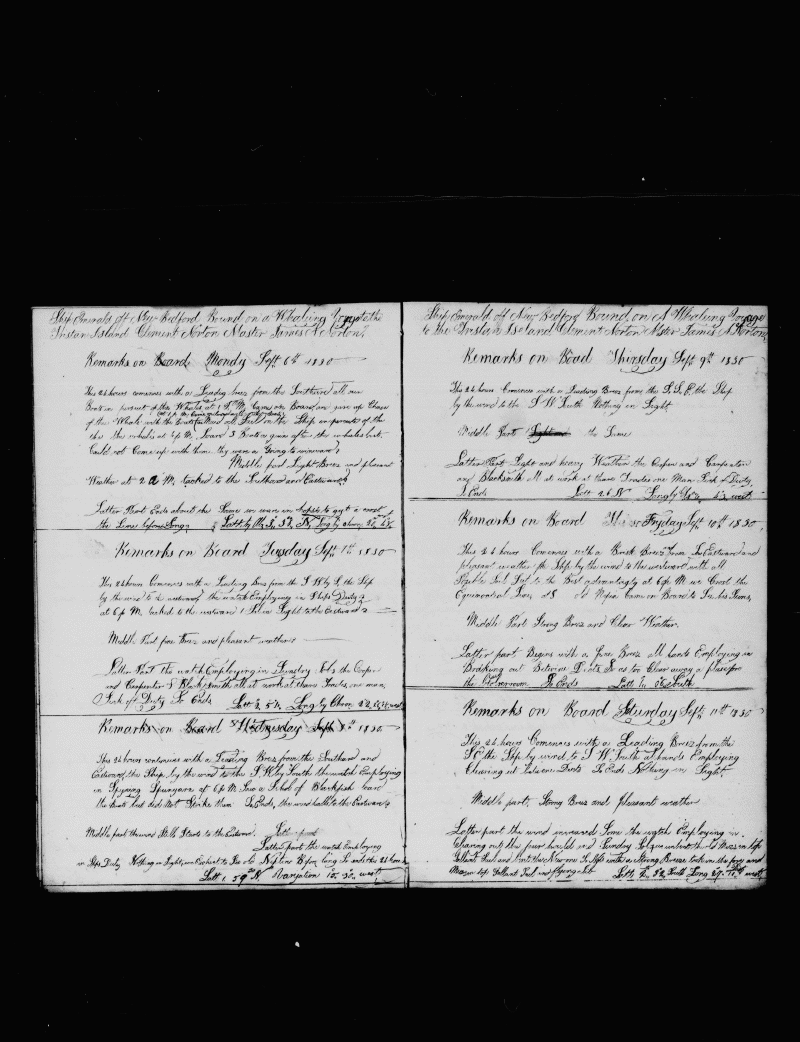 Ship Emerald off New Bedford Bound on a Whaling Voyage to the
Tristan Island Clement Norton Master James N Norton
Remarks on Board Mondy Sept 6th 1830
This 24 hours comences with a Leading brez from the Southerd all our
Boats in persuit of the Whales at 1 P M Came on Board and give up Chase
of the Whale with the Boats and all Sail on the Ship in persute of the
the the whales at 6 p M Loard 3 Boats gave after the whales but
Could not Come up with them they were a Going to winward
Middle part Light Brez and plesant
Weather at 2 a M tacked to the Suthard and Eastward
Latter Part Ends about the Same we ware in hopes to gyt a
the Line before Long Latt by Ob 3, 52 N Long by chron
Remarks on Board Tusday Sept 7th 1830
This 24 hour Comences with a Leading Brez from the S W by S the Ship
by the wind to the westward the watch Employing in Ships Duty
at 6 p M tacked to the westward 1 Sail in Sight to the Eastward
Middle Part fine Brez and pleasant wether
Latter Part the watch Employing in Sundry Jobs the Cooper
and Carpenter & Blacksmith all at work at thare Trades one man
Sick off Duty So Ends Latt 3, 5 N Long by Chron
Remarks on Board Wednesday Sept 8th 1830
This 24 hour comences with a Leading Brez from the Southard and
Eastward the Ship by the wind to the S W by South the watch Employing
in Spying Spunyarn at 6 p M Saw a School of Blackfish Loard
the Boats but did Not Strike them So Ends, the wind hald to the Eastward
Middle part the wind Still Stands to the Eastward. Latter part
Latter part the watch Employing
in Ships Duty Nothing in Sight, we Expect to See old Neptune Before Long So ends this 24 hours
Latt 1, 59 N Variation 10, 30 west
Ship Emerald off New Bedford Bound on A Whaling Voyage
to the Tristan Island Clement Norton Mster James N Norton
Remarks on Board Thursday Sept 9th 1830
This 24 hour Comences with a Leading Brez from the S, S, E, the Ship
by the wind to the S W Suth Nothing in Sight
Middle Part the Same
Latter Part Light and heavy Weather the Cooper and Carpenter
and Blacksmith All at work at thare Trades one Man Sick of Duty,
So Ends Latt 26 N west
Remarks on Board Fryday Sept 10th 1830
This 24 hour Comences with a Brisk Brez from the Eastward and
plesant weather the Ship by the wind to the westward with all
Sail Set to the Best advantage at 6 p M we Crost the
Equenoctial Line old Neptune Came on Board to See his Sons,
Middle Part Strong Brez and Clear Weather.
Latter part Begins with a fine Brez All hands Employing in
Braking out Between Decks So as too Clear away a place for
the So Ends Latt South
Remarks on Board Saturday Sept 11th 1830
This 24 hour Comences with a Leading Brez from the
the Ship by wind to S W Suth all hands Employing
Clearing out Between Decks So Ends Nothing in Sight.
Middle part, Strong Brez and pleasant wether
Latter part the wind incresed Some the watch Employing in
Clearing out the four hould and Sundry Jobs
Gallant Sail and with a Strong Breeze took in the fore and
Main top Gallant Sail and flying Jib Latt South Long west